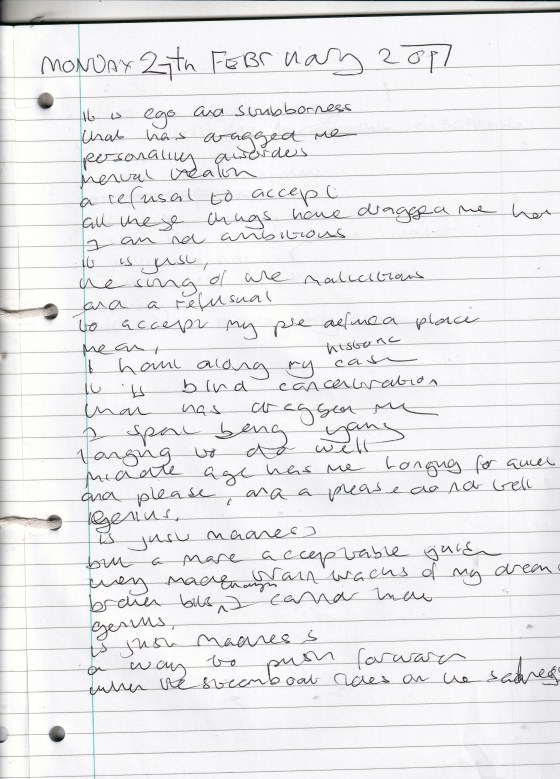 MONDAY 27th FEBRUARY 2017
It is ego and stubborness
that has dragged me
personality disorders
mental health
a refusal to accept
all these things have dragged me her
I am not ambitious
it is just,
the of the
and a refusual
to accept my pre defined place
mean,
I haul along my historic cash
it is blind concentration
that has dragged me
I spent being young
longing to do well
middle age has me longing for quiet
and please, and a please do not tell
genius,
is just madness
but a more acceptable
they made enough of my dream
broken bits, I cannot
genius,
is just madness
a way to push forward
when the steamboat rides on the sadness